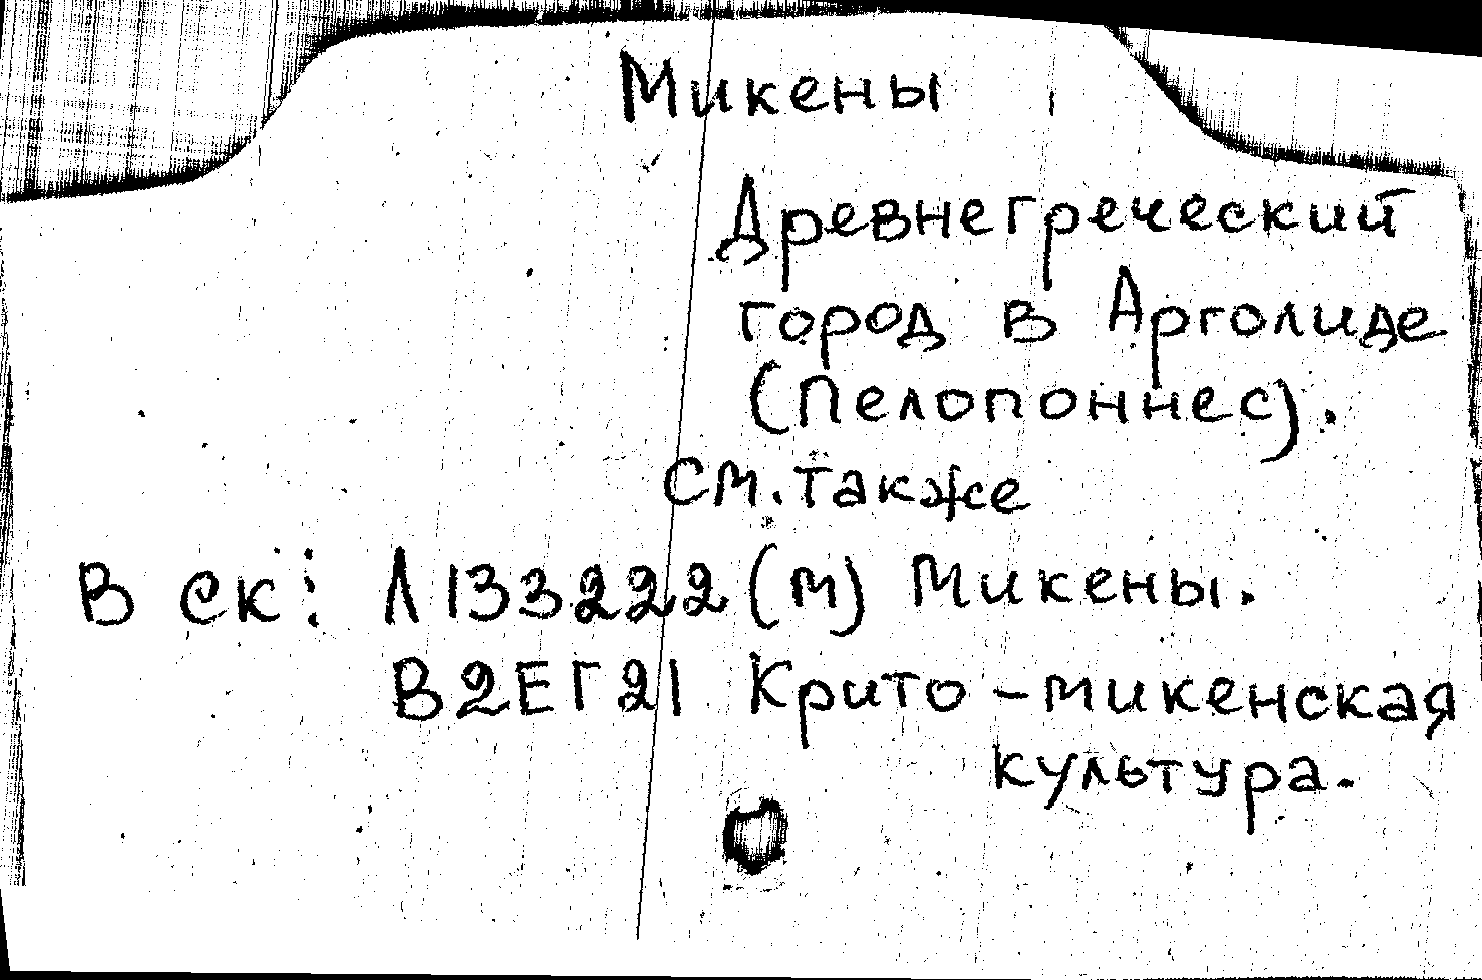 Микены
Древнегреческий
город в Арголиде
(Пелопоннес).
см. также
В ск: Л133222(м) Микены.
В2ЕГ21 Крито-микенская
культура.